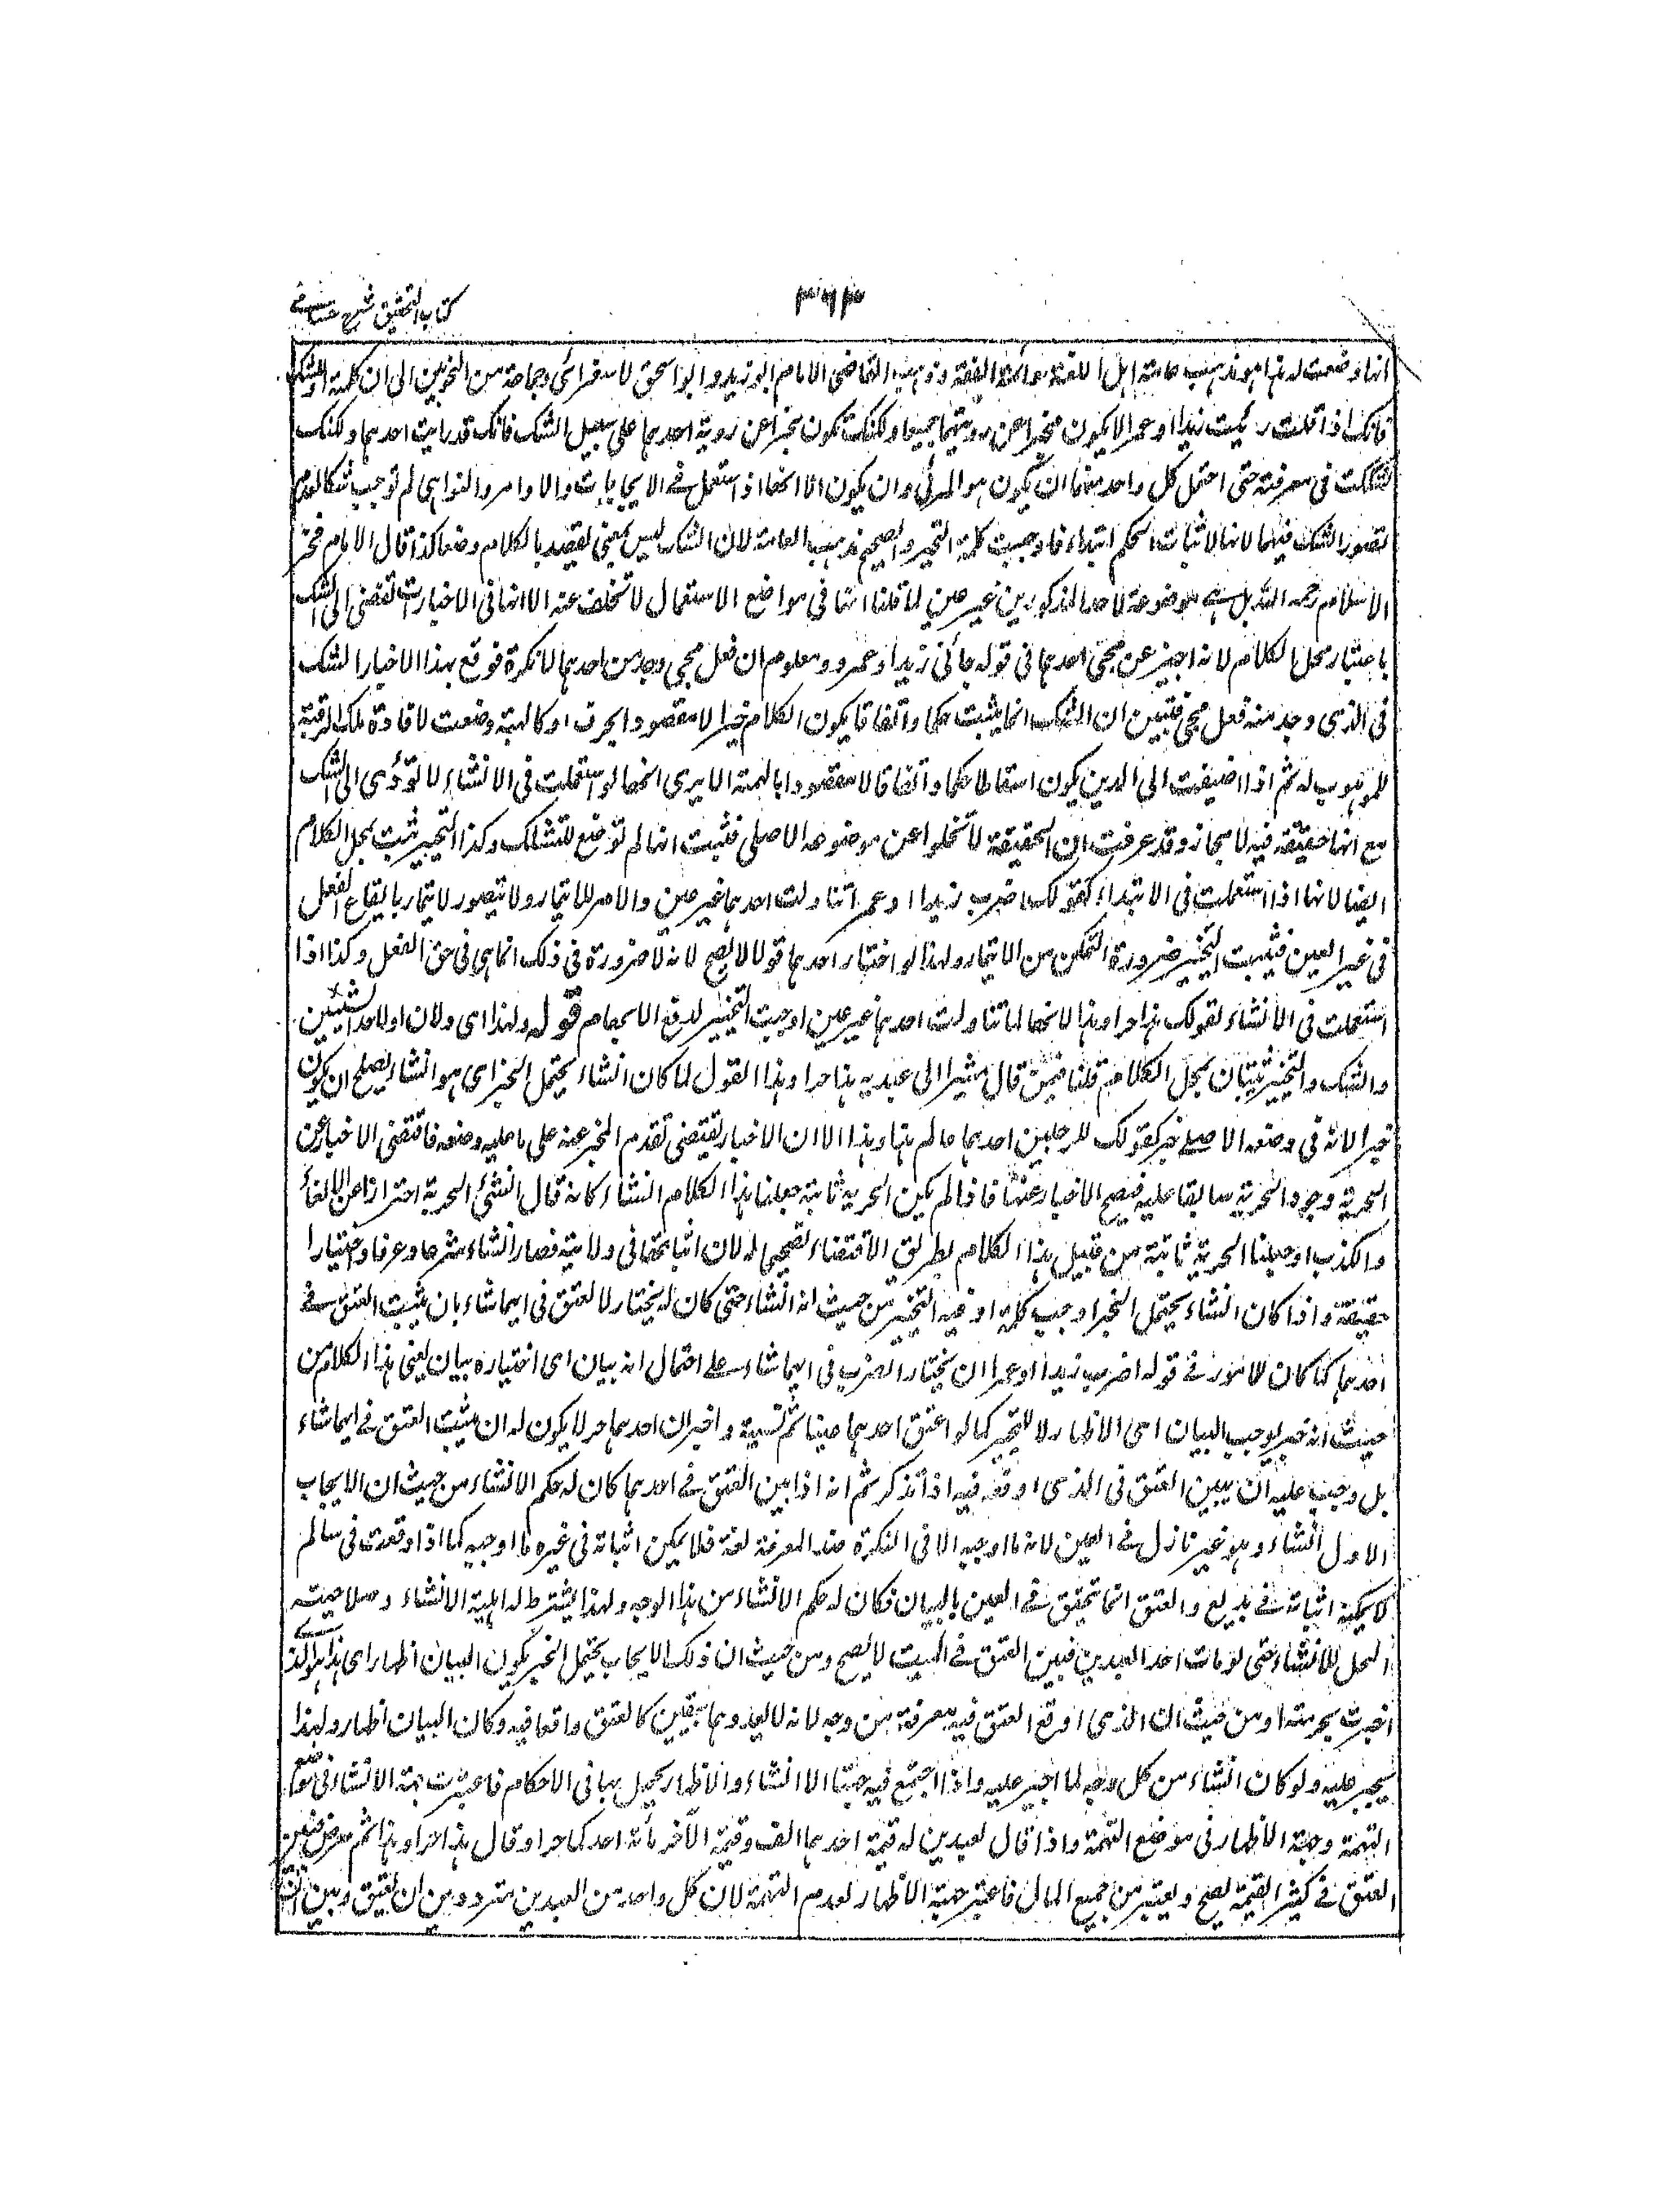 كتاب التحقيق شرح حسامي
انها وضعت له هذا هو مذهب عامة اهل اللغة وائمة الفقه وذهب القاضى الامام ابو زيد وابو اسحق الاسفرائى وجماعة من النحويين الى ان كلمة او للشك
فانك اذا قلت رئيت زيدا او عمرا لا يكون مخبرا عن رويتهما جميعا ولكنك تكون مخبرا عن روية احدهما على سبيل الشك فانك قد رايت احدهما ولكنك
شككت فى معرفته حتى احتمل كل واحد منهما ان يكون هو المرئى وان يكون الا انها اذا استعمل فى الايجابات والاوامر والنواهى لم توجب شكا لعدم
تصور الشك فيها لانها لاثبات الحكم ابتداء فاوجبت كلمة التخير والصحيح مذهب العامة لان الشك ليس بمعنى يقصد بالكلام وضعا كذا قال الامام فخر
الاسلام رحمه الله بل هى موضوعة لاحد المذكورين غير عين لما قلنا انها فى مواضع الاستعمال لا تتخلف عنه الا انها فى الاخبارات تفضى الى الشك
باعتبار محل الكلام لانه اخبر عن مجئ احدهما فى قوله جائنى زيد او عمرو ومعلوم ان فعل مجى وجد من احدهما لا نكرة فوقع بهذا الاخبار الشك
فى الذى وجد منه فعل مجى فتبين ان الشك انما يثبت حكما واتفاقا بكون الكلام خبرا لا مقصودا بحرف او كالهبة وضعت لافادة ملك الرقبة
للموهوب له ثم اذا اضيفت الى الدين يكون اسقاطا حكما واتفاقا لا مقصودا بالهبة الا يرى انها لو استعملت فى الانشاء لا تؤدى الى الشك
مع انها حقيقة فيه لا مجاز وقد عرفت ان الحقيقة لا تخلوا عن موضوعه الاصلى فثبت انها لم توضع للتشكك وكذا التخيير يثبت بمحل الكلام
ايضا لانها اذا استعملت فى الابتداء كقولك اضرب زيدا او عمرا تناولت احدهما غير عين والامر للايتمار ولا يتصور لايتمار بايقاع الفعل
فى غير العين فثبت التخيير ضرورة التمكن من الايتمار ولهذا لو اختار احدهما قولا لا يصح لانه لا ضرورة فى ذلك انما هى فى حق الفعل وكذا اذا
استعملت فى الانشاء كقولك هذا حر او هذا لانها لما تناولت احدهما غير عين اوجبت التخيير لدفع الابهام قوله ولهذا اى ولان او لاحد الشيئين
والشك والتخيير يثبتان بمحل الكلام قلنا فيمن قال مشيرا الى عبديه هذا حر او هذا القول لما كان انشاء يحتمل الخبر اى هو انشاء يصلح ان يكون
خبرا لانه فى وضعه الاصلى خبر كقولك للرجلين احدهما عالم هذا وهذا الا ان الاخبار يقتضى تقدم المخبر عنه على ما عليه وضعه فاقتضى الاخبار عن
الحرية وجود الحرية سابقا عليه فيصح الاخبار عنها فاذا لم يكن الحرية ثابتة جعلنا هذا الكلام انشاء كانه قال انشئ الحرية احترازا عن الالغاء
والكذب او جعلنا الحرية ثابتة من قبيل هذا الكلام بطريق الاقتضاء تصحيحا له لان اثباتها فى ولايته فصار انشاء شرعا وعرفا واختيارا
حقيقة واذا كان انشاء يحتمل الخبر اوجب كلمة او فيه التخيير من حيث انه انشاء حتى كان له يختار لا لعتق فى ايهما شاء بان يثبت العتق فى
احدهما كما كان للامور فى قوله اضرب زيدا او عمرا ان يختار الضرب فى ايهما شاء على احتمال انه بيان اى اختياره بيان يعنى هذا الكلام من
حيث انه خبر يوجب البيان اى الاظهار لا التخيير كما لو اعتق احدهما عينا ثم نسيه واخبر ان احدهما حر لا يكون له ان يثبت العتق فى ايهما شاء
بل وجب عليه ان يبين العتق فى الذى اوقعه فيه اذا تذكر ثم انه اذا بين العتق فى احدهما كان له حكم الانشاء من حيث ان الايجاب
الاول انشاء وهو غير نازل فى العين لانه ما اوجبه الا فى النكرة ضد المعرفة لغة فلا يمكن اثباته فى غيره ما اوجبه كما اذا اوقعه فى سالم
لا يمكنه اثباته فى بديع والعتق انما يتحقق فى العين بالبيان فكان له حكم الانشاء من هذا الوجه ولهذا يشترط له اهلية الانشاء وصلاحيته
المحل للانشاء حتى لو مات احد العبدين فبين العتق فى الميت لا يصح ومن حيث ان ذلك الايجاب يحتمل الخبر يكون البيان اظهارا اى هذا هو الذى
اخبرت بحريته او من حيث ان الذى اوقع العتق فيه معرفة من وجه لانه لا يعدوهما بيقين كالعتق واقعا فيه وكان البيان اظهار ولهذا
يجبر عليه ولو كان انشاء من كل وجه لما اجبر عليه واذا اجتمع فيه جهتا الانشاء والاظهار يحمل بها فى الاحكام فاعتبرت جهة الانشاء فى موضع
التهمة وجهة الاظهار فى موضع التهمة واذا قال لعبدين له قيمة احدهما الف وقيمة الآخر مائة احدكما حر او قال هذا حر او هذا ثم مرض فبين
العتق فى كثير القيمة يصح ويعتبر من جميع المال فاعتبر جهة الاظهار لعدم التهمة لان كل واحد من العبدين متردد بين ان يعتق وبين ان